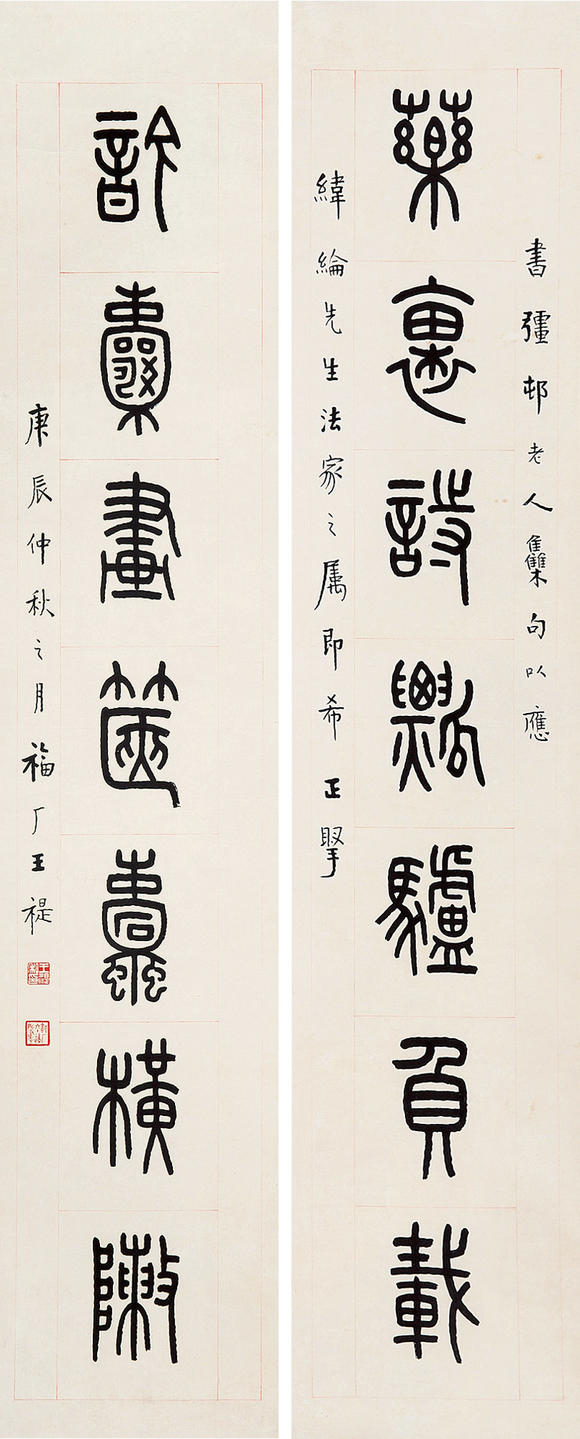 書彊邨老人雧句以應
藥裹詩瓢驢負載
緯綸先生法家之属即希正掔
訡囊畫篋蠹橫敶
庚辰仲秋之月福厂王禔